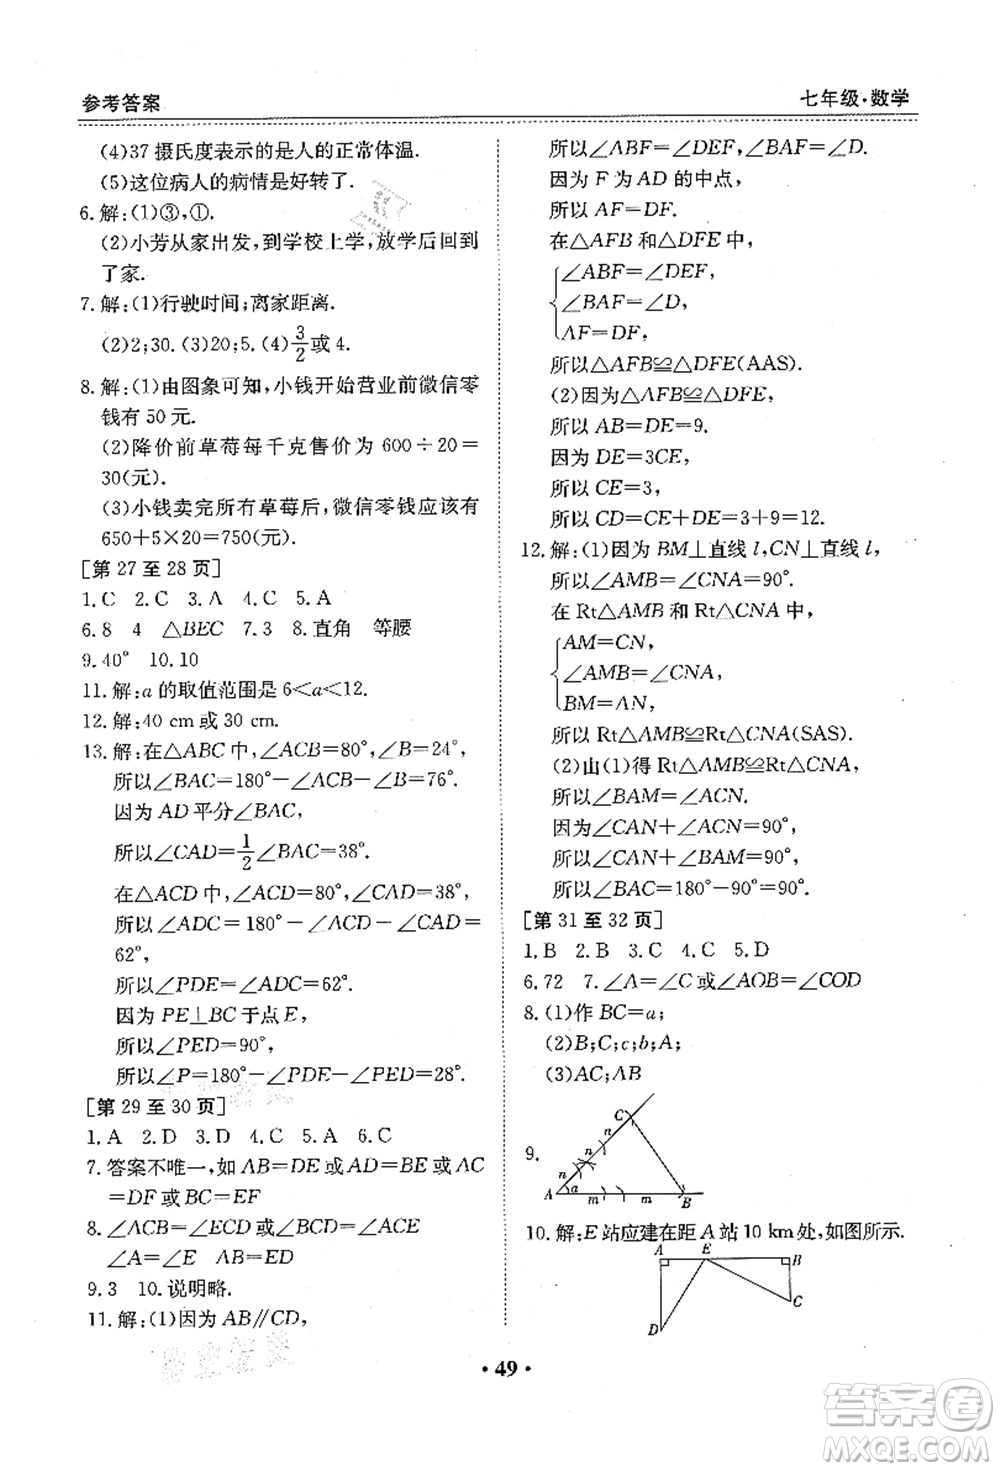 参考答案
七年级·数学
(4)37摄氏度表示的是人的正常体温.
(5)这位病人的病情是好转了.
6.解:(1)③,①.
(2)小芳从家出发,到学校上学,放学后回到
了家.
7.解:(1)行驶时间;离家距离.
(2)2;30.(3)20;5.(4)3/2或4.
8.解:(1)由图象可知,小钱开始营业前微信零
钱有50元.
(2)降价前草莓每千克售价为600÷20=
30(元).
(3)小钱卖完所有草莓后,微信零钱应该有
650+5×20=750(元).
[第27至28页]
1.C 2.C 3.A 4.C 5.A
6.8 4 △BEC 7.3 8.直角 等腰
9.40° 10.10
11.解:a的取值范围是6<a<12.
12.解:40 cm或30 cm.
13.解:在△ABC中,∠ACB=80°,∠B=24°,
所以∠BAC=180°-∠ACB-∠B=76°.
因为AD平分∠BAC,
所以∠CAD=1/2∠BAC=38°.
在△ACD中,∠ACD=80°,∠CAD=38°,
所以∠ADC=180°-∠ACD-∠CAD=
62°,
所以∠PDE=∠ADC=62°.
因为PE⊥BC于点E,
所以∠PED=90°,
所以∠P=180°-∠PDE-∠PED=28°.
[第29至30页]
1.A 2.D 3.D 4.A 5.A 6.C
7.答案不唯一,如AB=DE或AD=BE或AC
=DF或BC=EF
8.∠ACB=∠ECD或∠BCD=∠ACE
∠A=∠E AB=ED
9.3 10.说明略.
11.解:(1)因为AB∥CD,
所以∠ABF=∠DEF,∠BAF=∠D.
因为F为AD的中点,
所以AF=DF.
在△AFB和△DFE中,
∠ABF=∠DEF,
∠BAF=∠D,
AF=DF,
所以△AFB≌△DFE(AAS).
(2)因为△AFB≌△DFE,
所以AB=DE=9.
因为DE=3CE,
所以CE=3,
所以CD=CE+DE=3+9=12.
12.解:(1)因为BM⊥直线l,CN⊥直线l,
所以∠AMB=∠CNA=90°.
在Rt△AMB和Rt△CNA中,
AM=CN,
∠AMB=∠CNA,
BM=AN,
所以Rt△AMB≌Rt△CNA(SAS).
(2)由(1)得Rt△AMB≌Rt△CNA,
所以∠BAM=∠ACN.
因为∠CAN+∠ACN=90°,
所以∠CAN+∠BAM=90°,
所以∠BAC=180°-90°=90°.
[第31至32页]
1.B 2.B 3.C 4.C 5.D
6.72 7.∠A=∠C或∠AOB=∠COD
8.(1)作BC=a;
(2)B;C;c;b;A;
(3)AC;AB
9.
C
n
n
n
A
a
m
m
B
10.解:E站应建在距A站10 km处,如图所示.
A
E
B
C
D
·49·
答案圈
MXQE.COM